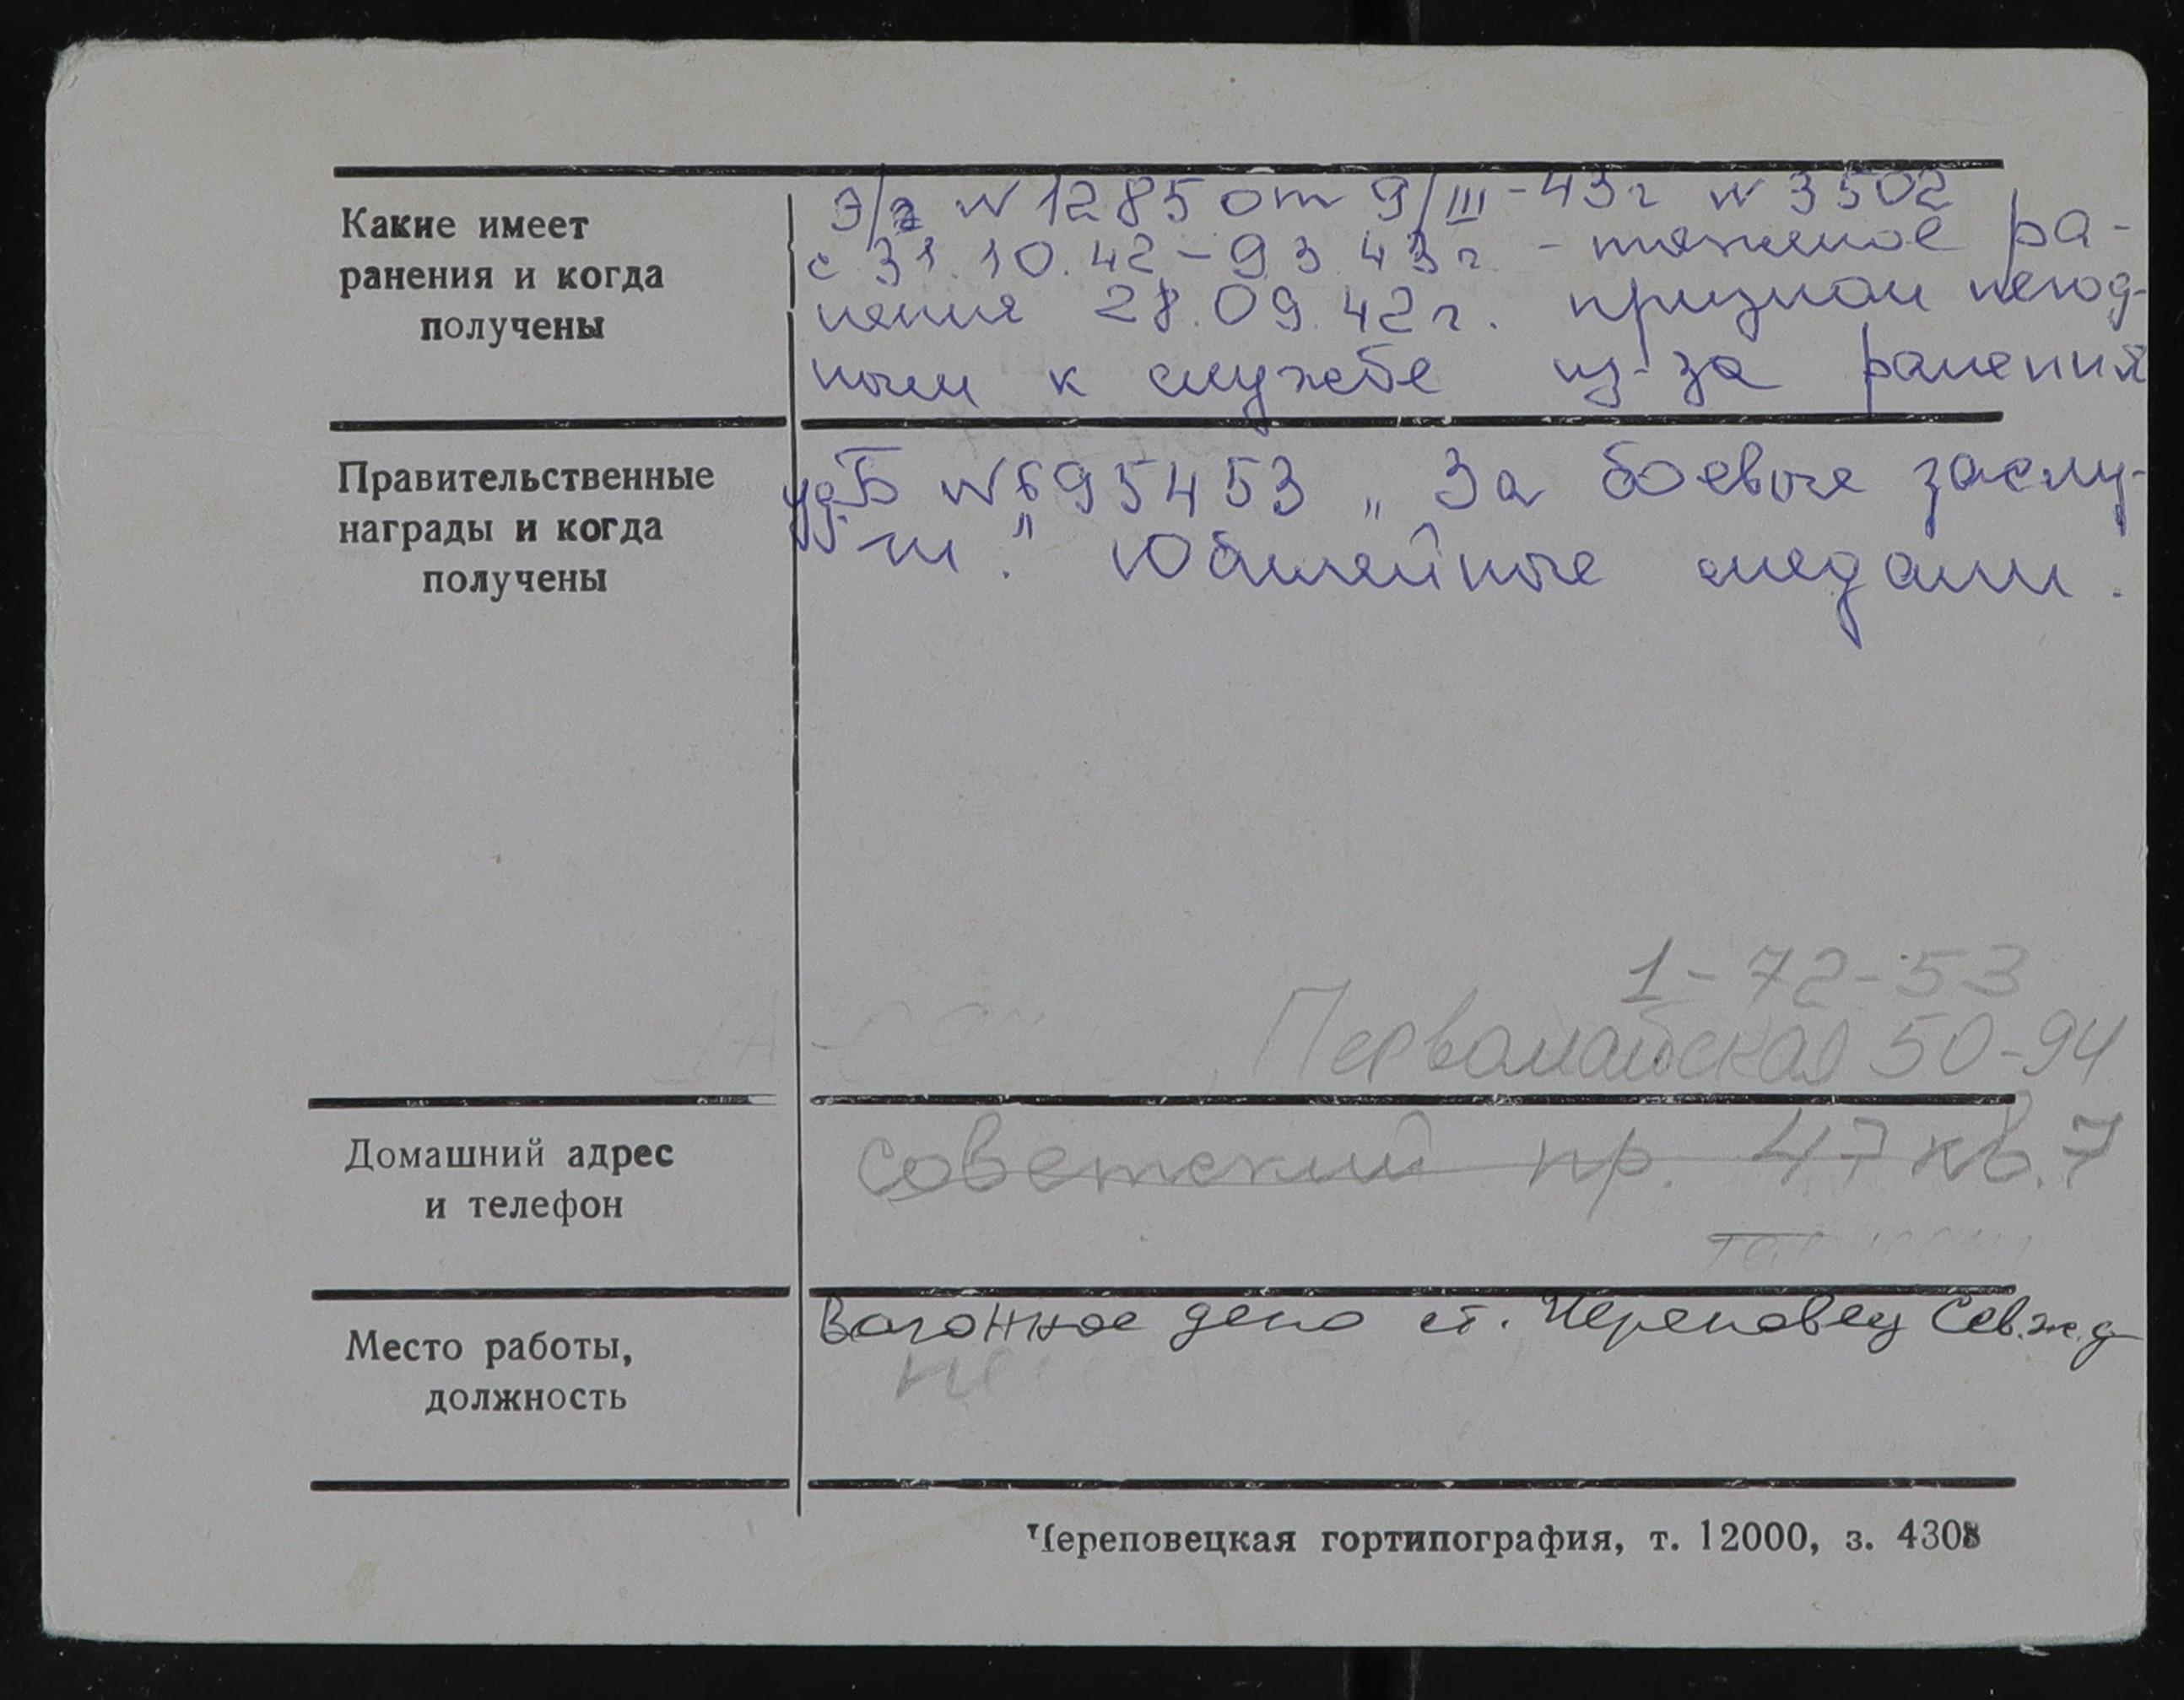 Какие имеет
ранения и когда
получены
Э/г № 1285 от 9/III-43г № 3502
с 31.10.42-9 3.43г. - тяжелое ра-
нения 28.09.42г. признан негод-
ным к службе из-за ранений
Правительственные
награды и когда
получены
уд. Б № 695453 „За боевые заслу-
ги." Юбилейные медали.
1-72-53
Первомайская 50-94
Домашний адрес
и телефон
Советский пр. 47 кв. 7
Место работы,
должность
Вагонное депо ст. Череповец Сев.ж.д
Череповецкая гортипография, т. 12000, з. 4308